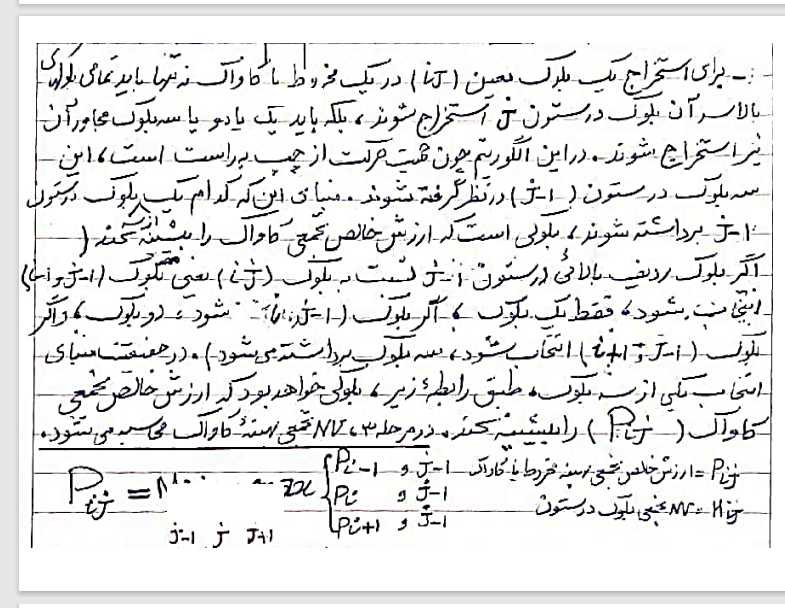 - برای استخراج یک بلوک معین (i,j) در یک مخروط یا کاواک نه تنها باید تمامی بلوکهای
بالاسر آن بلوک در ستون j استخراج شوند، بلکه باید یک یا دو یا سه بلوک مجاور آن
نیز استخراج شوند. در این الگوریتم چون جهت حرکت از چپ به راست است، این
سه بلوک در ستون (j-1) در نظر گرفته شوند. مبنای این که کدام یک بلوک در ستون
j-1 برداشته شوند، بلوکی است که ارزش خالص تجمعی کاواک را بیشینه کند (
اگر بلوک ردیف بالائی در ستون j-1 نسبت به بلوک (i,j) یعنی بلوک (i-1 و j-1)
انتخاب شود، فقط یک بلوک، اگر بلوک (i, j-1) شود، دو بلوک، و اگر
بلوک (i+1 و j-1) انتخاب شود، سه بلوک برداشته می شود). در حقیقت مبنای
انتخاب یکی از سه بلوک، طبق رابطهٔ زیر، بلوکی خواهد بود که ارزش خالص تجمعی
کاواک (Pij) را بیشینه کند. در مرحله ۳، NV تجمعی بهینهٔ کاواک محاسبه می شود.
Pij = ارزش خالص تجمعی بهینه مخروط یا کاواک
Mij = NV تجمعی بلوک در ستون
Pij = M
Pi-1 و j-1
Pi و j-1
Pi+1 و j-1
j-1 j j+1